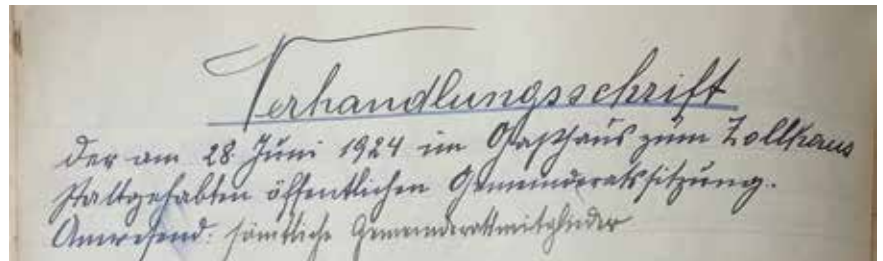 Verhandlungsschrift
der am 28 Juni 1924 im Gasthaus zum Zollhaus
stattgehabten öffentlichen Gemeinderatssitzung.
Anwesend: sämtliche Gemeinderatsmitglieder